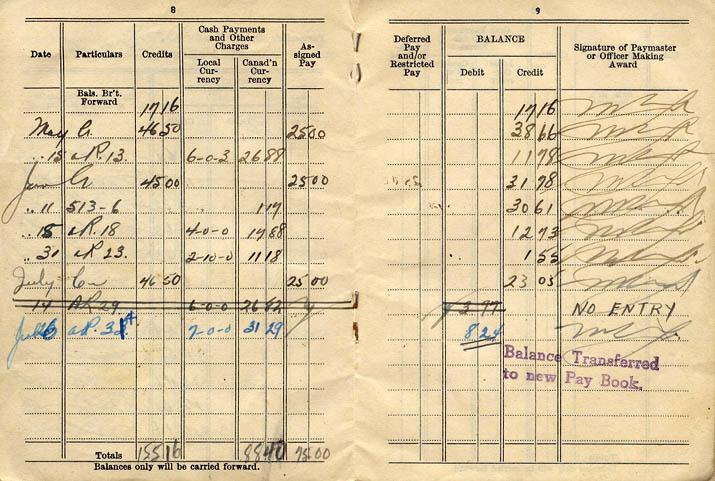 8
Date Particulars Credits Cash Payments and Other Charges As-signed Pay
Local Cur-rency Canad'n Cur-rency
Bals. Br't. Forward 17 16
May Cr. 46 50 25 00
.. 15 A.P. 13 6-0-3 26 88
June Cr. 45 00 25 00
.. 11 513-6 1 17
.. 18 A.P. 18 4-0-0 17 88
.. 31 A.P. 23. 2-10-0 11 18
July Cr. 46 50 25 00
14 A.P. 29 6-0-0 26 82
July 16 A.P. 7-0-0 31 29
Totals 155 16 88 40 75 00
Balances only will be carried forward.
9
Deferred Pay and/or Restricted Pay BALANCE Signature of Paymaster or Officer Making Award
Debit Credit
17 16
38 66
11 78
31 78
30 61
12 73
1 55
23 05
3 77 NO ENTRY
8 24
Balance Transferred
to new Pay Book.